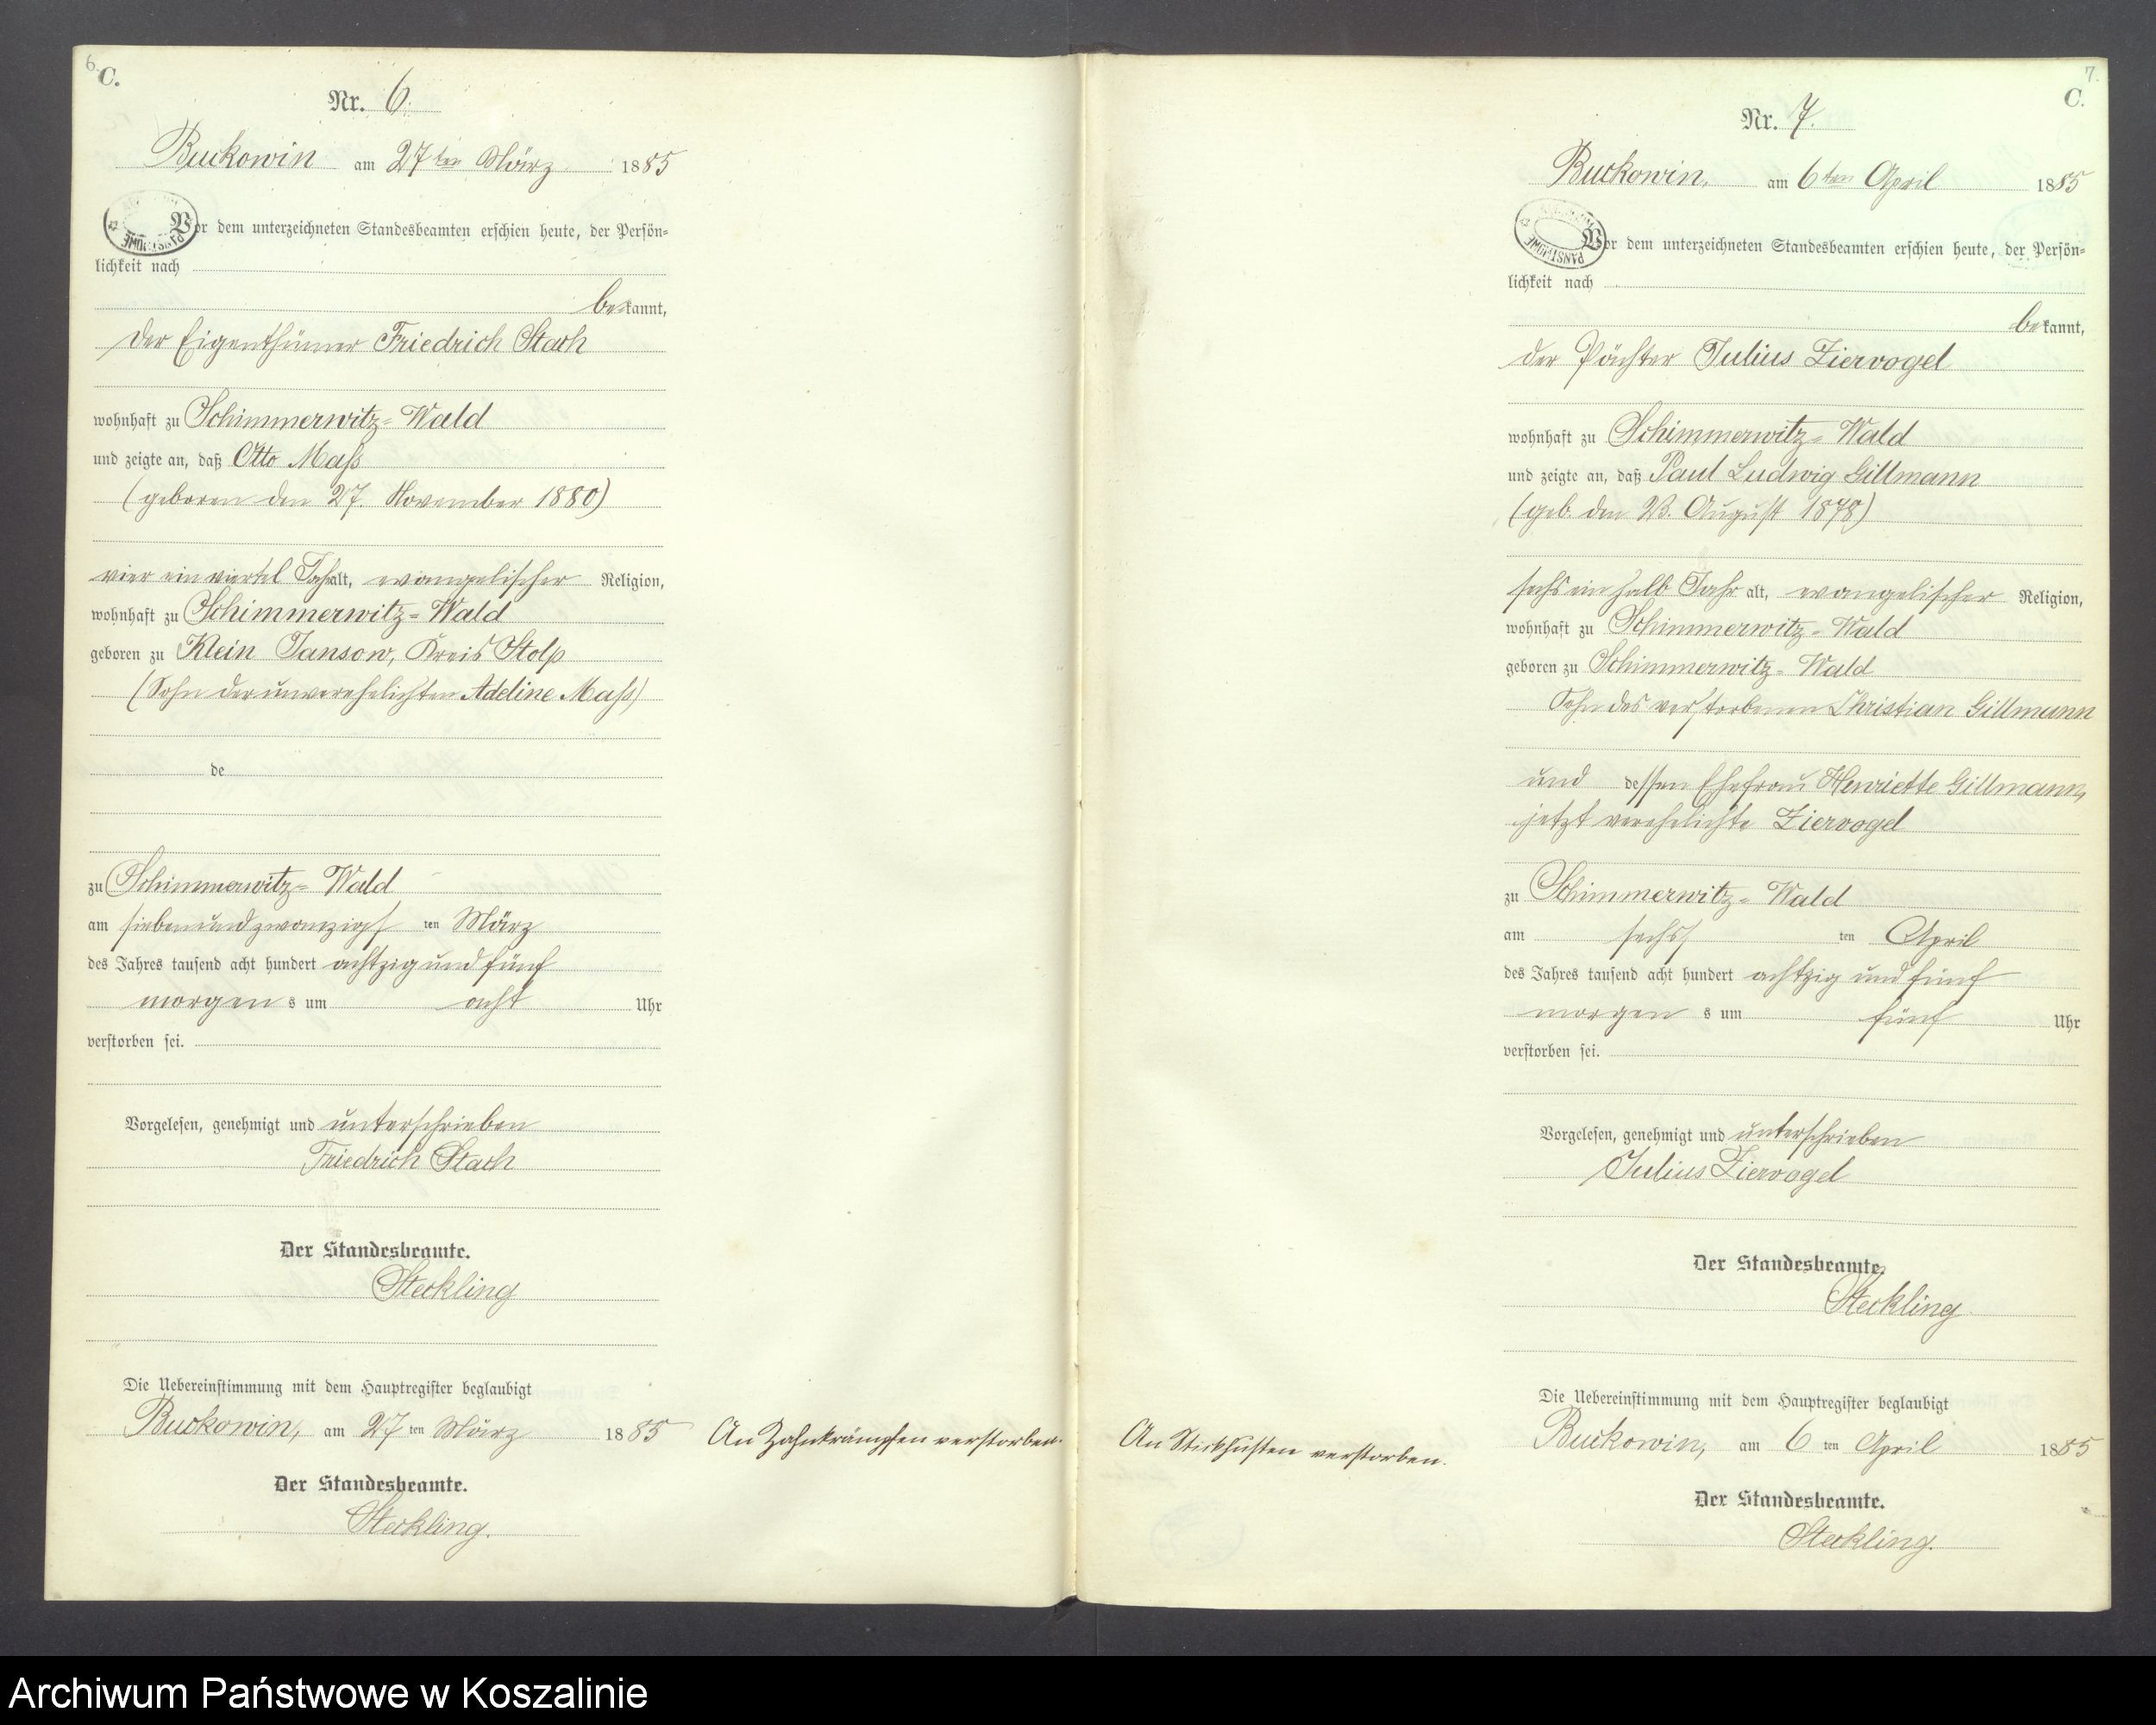 6.
C.
Nr. 6.
Buckowin am 27ten März 1885
Vor dem unterzeichneten Standesbeamten erschien heute, der Persön=
lichkeit nach
bekannt,
der Eigenthümer Friedrich Stach
wohnhaft zu Schimmerwitz-Wald
und zeigte an, daß Otto Maß
(geboren den 27. November 1880)
vier ein viertel Jahr alt, evangelischer Religion,
wohnhaft zu Schimmerwitz-Wald
geboren zu Klein Jansow, Kreis Stolp
(Sohn der unverehelichten Adeline Maß)
de
zu Schimmerwitz-Wald
am siebenundzwanzigsten März
des Jahres tausend acht hundert achtzig und fünf
morgens um acht Uhr
verstorben sei.
Vorgelesen, genehmigt und unterschrieben
Friedrich Stach
Der Standesbeamte.
Steckling
Die Uebereinstimmung mit dem Hauptregister beglaubigt
Buckowin, am 27ten März 1885
Der Standesbeamte.
Steckling.
An Zahnkrämpfen verstorben.
7.
C.
Nr. 7.
Buckowin, am 6ten April 1885
Vor dem unterzeichneten Standesbeamten erschien heute, der Persön=
lichkeit nach
bekannt,
der Pächter Julius Ziervogel
wohnhaft zu Schimmerwitz-Wald
und zeigte an, daß Paul Ludwig Gillmann
(geb. den 23. August 1878)
sechs ein halb Jahr alt, evangelischer Religion,
wohnhaft zu Schimmerwitz-Wald
geboren zu Schimmerwitz-Wald
Sohn des verstorbenen Christian Gillmann
und dessen Ehefrau Henriette Gillmann,
jetzt verehelichte Ziervogel
zu Schimmerwitz-Wald
am sechsten April
des Jahres tausend acht hundert achtzig und fünf
morgens um fünf Uhr
verstorben sei.
Vorgelesen, genehmigt und unterschrieben
Julius Ziervogel
Der Standesbeamte.
Steckling
Die Uebereinstimmung mit dem Hauptregister beglaubigt
Buckowin, am 6ten April 1885
Der Standesbeamte.
Steckling.
An Stickhusten verstorben.
Archiwum Państwowe w Koszalinie